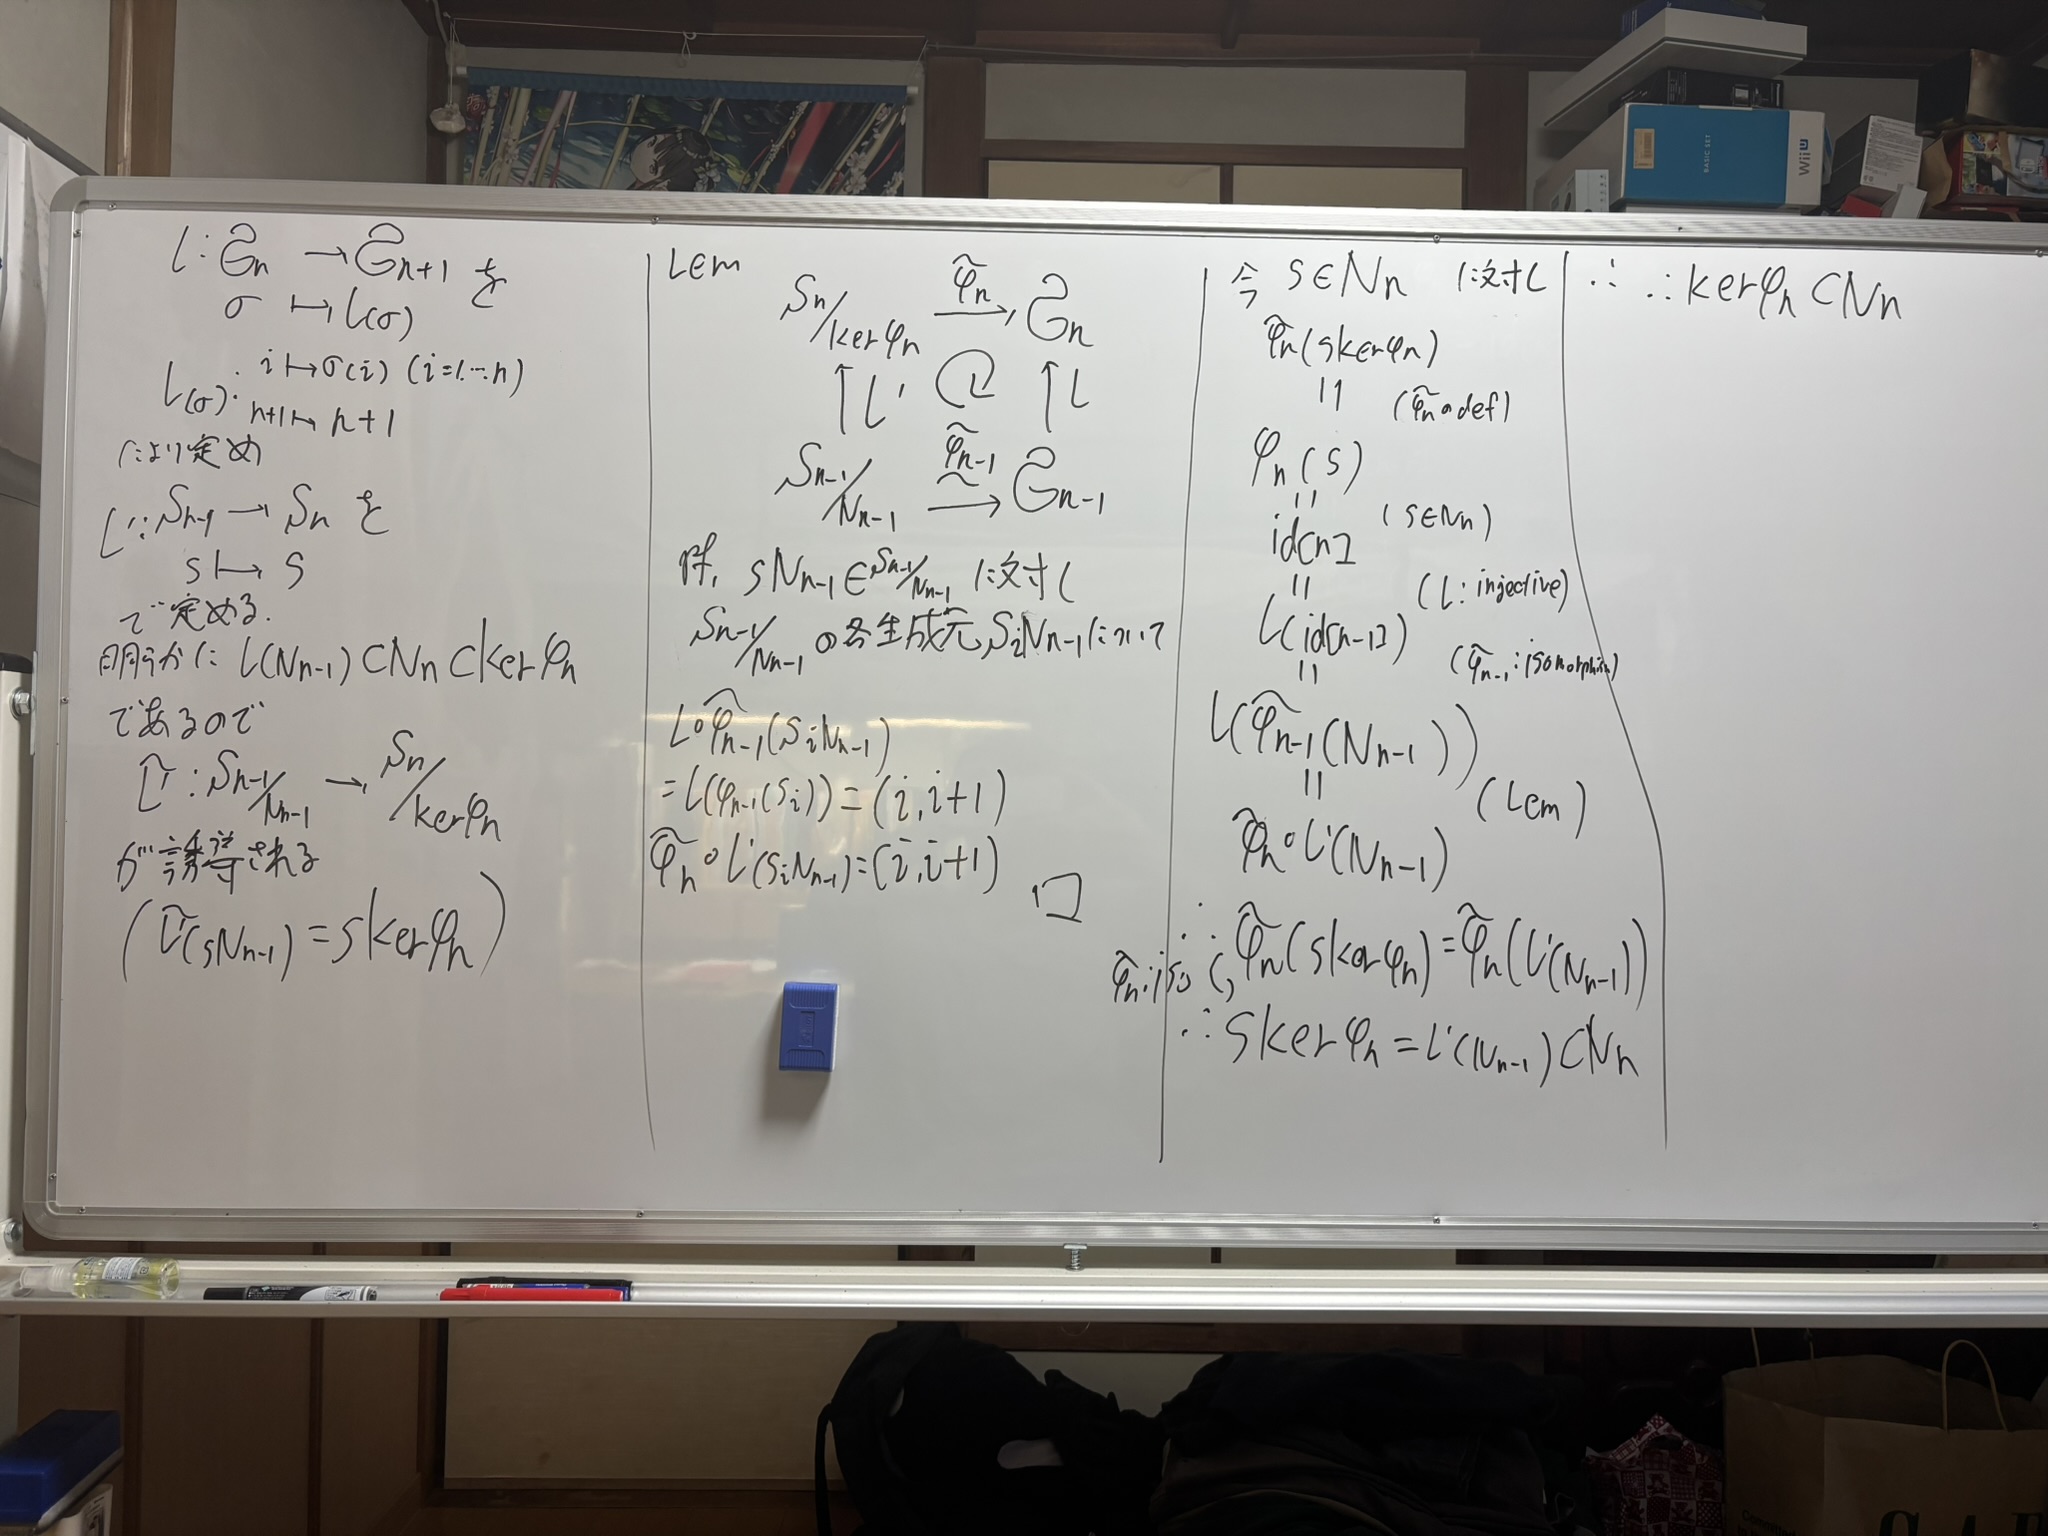 ι: 𝔖̂n → 𝔖̂n+1 を
σ ↦ ι(σ)
ι(σ): i ↦ σ(i) (i=1…n)
n+1 ↦ n+1
により定め
ι': Sn-1 → Sn を
s ↦ s
で定める.
明らかに ι(Nn-1) ⊂ Nn ⊂ kerφn
であるので
ι̃': Sn-1/Nn-1 → Sn/kerφn
が誘導される
(ι̃'(sNn-1) = s kerφn)
Lem
Sn/kerφn φ̃n → 𝔖̂n
↑ι' ↑ι
Sn-1/Nn-1 φ̃n-1 ~ → 𝔖̂n-1
Pf, sNn-1 ∈ Sn-1/Nn-1 に対し
Sn-1/Nn-1 の各生成元 siNn-1 について
ι∘φ̃n-1(siNn-1)
= ι(φn-1(si)) = (i, i+1)
φ̃n∘ι'(siNn-1) = (i, i+1)
□
今 s∈Nn に対し
φ̃n(s kerφn)
|| (φ̃n の def)
φn(s)
|| (s∈Nn)
id[n]
|| (ι: injective)
ι(id[n-1])
|| (φ̃n-1: isomorphism)
ι(φ̃n-1(Nn-1))
|| (Lem)
φ̃n∘ι'(Nn-1)
∴ φ̃n(s kerφn) = φ̃n(ι'(Nn-1))
φ̃n: iso
∴ s kerφn = ι'(Nn-1) ⊂ Nn
∴ ∴ kerφn ⊂ Nn
BASIC SET
Wii U